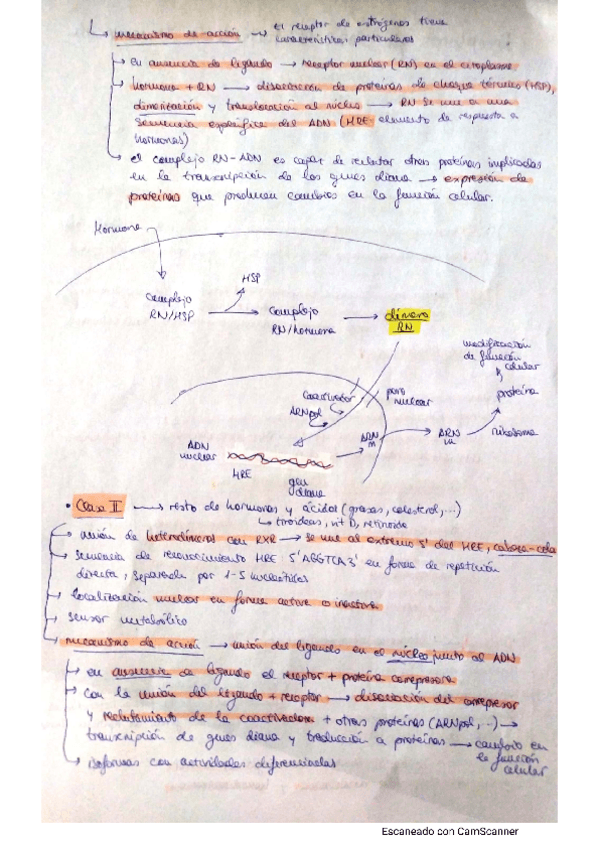 ↳ mecanismo de acción → el receptor de estrógenos tiene
características particulares
→ en ausencia de ligando → receptor nuclear (RN) en el citoplasma
→ hormona + RN → disociación de proteínas de choque térmico (HSP),
dimerización y translocación al núcleo → RN se une a una
secuencia específica del ADN (HRE elemento de respuesta a
hormonas)
→ el complejo RN-ADN es capaz de reclutar otras proteínas implicadas
en la transcripción de los genes diana → expresión de
proteínas que producen cambios en la función celular.
Hormona
HSP
complejo
RN/HSP
complejo
RN/hormona
dímero
RN
modificación
de función
celular
proteína
ribosoma
coactivador
ARNpol
poro
nuclear
ARN
m
ARN
m
ADN
nuclear
HRE
gen
diana
• Clase II → resto de hormonas y ácidos (grasos, colesterol,...)
↳ tiroideas, vit D, retinoide
→ unión de heterodímeros con RXR → se une al extremo 5' del HRE, cabeza-cola
→ secuencia de reconocimiento HRE 5'AGGTCA3' en forma de repetición
directa, separada por 1-5 nucleótidos
→ localización nuclear en forma activa o inactiva
→ sensor metabólico
→ mecanismo de acción → unión del ligando en el núcleo junto al ADN
→ en ausencia de ligando el receptor + proteína correpresora
→ con la unión del ligando + receptor → disociación del correpresor
y reclutamiento de la coactivadora + otras proteínas (ARNpol,..) →
transcripción de genes diana y traducción a proteínas → cambio en
la función
celular
→ isoformas con actividades diferenciadas
Escaneado con CamScanner